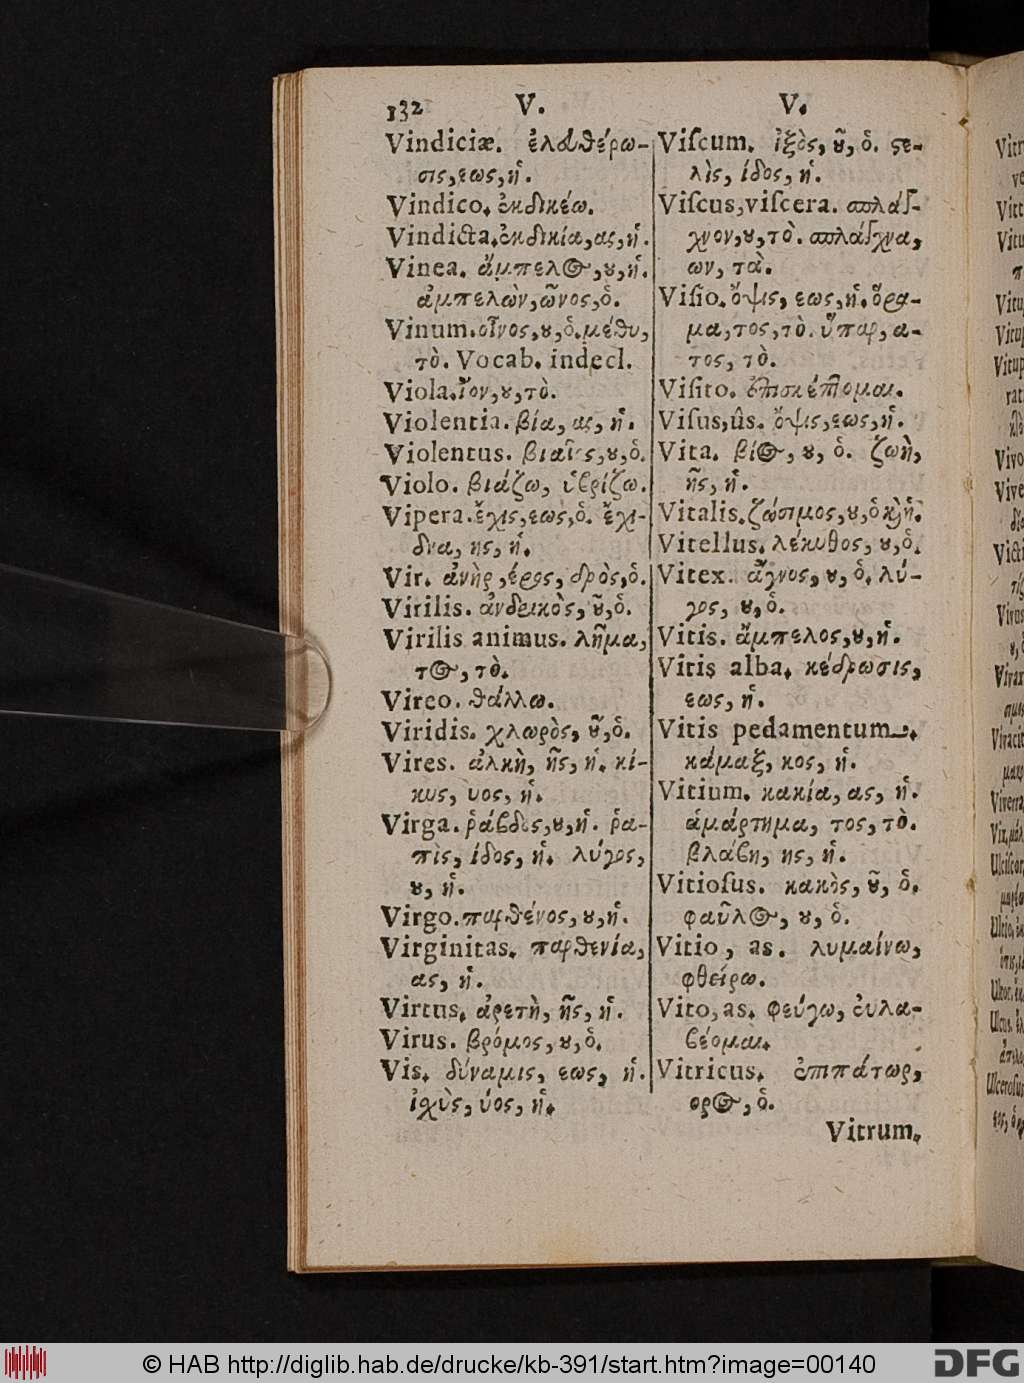 132 V. V.
Vindiciæ. ἐλευθέρω-
σις, εως, ἡ.
Vindico. ἐκδικέω.
Vindicta. ἐκδικία, ας, ἡ.
Vinea. ἄμπελος, ου, ἡ.
ἀμπελὼν, ῶνος, ὁ.
Vinum. οἶνος, ου, ὁ. μέθυ,
τὸ. Vocab. indecl.
Viola. ἴον, ου, τὸ.
Violentia. βία, ας, ἡ.
Violentus. βιαῖος, ου, ὁ.
Violo. βιάζω, ὑβρίζω.
Vipera. ἔχις, εως, ὁ. ἔχι-
δνα, ης, ἡ.
Vir. ἀνὴρ, έρος, δρὸς, ὁ.
Virilis. ἀνδρικὸς, οῦ, ὁ.
Virilis animus. λῆμα,
τος, τὸ.
Vireo. θάλλω.
Viridis. χλωρὸς, οῦ, ὁ.
Vires. ἀλκὴ, ῆς, ἡ. κί-
κυς, υος, ἡ.
Virga. ῥάβδος, ου, ἡ. ῥα-
πὶς, ίδος, ἡ. λύγος,
ου, ἡ.
Virgo. παρθένος, ου, ἡ.
Virginitas. παρθενία,
ας, ἡ.
Virtus. ἀρετὴ, ῆς, ἡ.
Virus. βρόμος, ου, ὁ.
Vis. δύναμις, εως, ἡ.
ἰχὺς, ύος, ἡ.
Viſcum. ἰξὸς, οῦ, ὁ. στε-
λὶς, ίδος, ἡ.
Viſcus, viſcera. σπλάγ-
χνον, ου, τὸ. σπλάγχνα,
ων, τὰ.
Viſio. ὄψις, εως, ἡ. ὅρα-
μα, τος, τὸ. ὕπαρ, α-
τος, τὸ.
Viſito. ἐπισκέπτομαι.
Viſus, ûs. ὄψις, εως, ἡ.
Vita. βίος, ου, ὁ. ζωὴ,
ῆς, ἡ.
Vitalis. ζώσιμος, ου, ὁ καὶ ἡ.
Vitellus. λέκυθος, ου, ὁ.
Vitex. ἄγνος, ου, ὁ. λύ-
γος, ου, ὁ.
Vitis. ἄμπελος, ου, ἡ.
Vitis alba. κέδρωσις,
εως, ἡ.
Vitis pedamentum.
κάμαξ, κος, ἡ.
Vitium. κακία, ας, ἡ.
ἁμάρτημα, τος, τὸ.
βλάβη, ης, ἡ.
Vitioſus. κακὸς, οῦ, ὁ.
φαῦλος, ου, ὁ.
Vitio, as. λυμαίνω,
φθείρω.
Vito, as. φεύγω, εὐλα-
βέομαι.
Vitricus. ἐπιπάτωρ,
ορος, ὁ.
Vitrum.
© HAB http://diglib.hab.de/drucke/kb-391/start.htm?image=00140
DFG